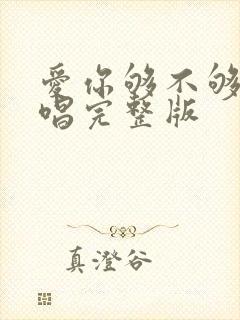 愛你够不够
唱完整版
真澄谷